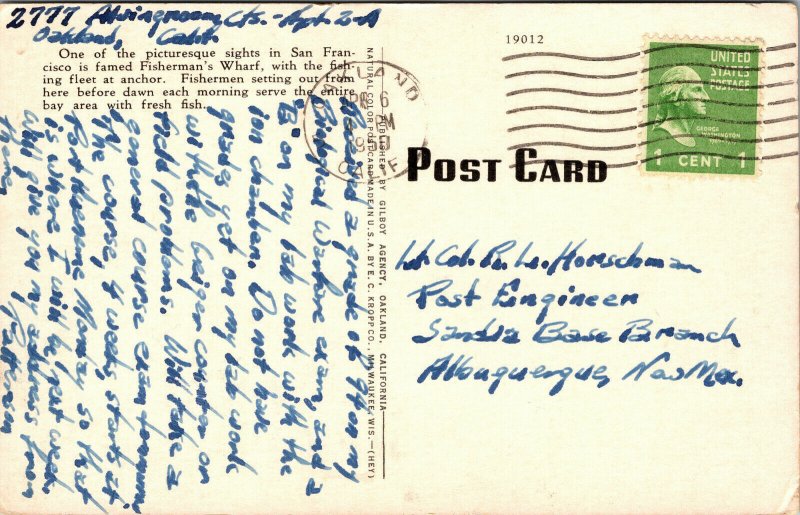 2777 Alvingroom Cts. - Apt 2-A
Oakland, Calif.
One of the picturesque sights in San Fran-
cisco is famed Fisherman's Wharf, with the fish-
ing fleet at anchor. Fishermen setting out from
here before dawn each morning serve the entire
bay area with fresh fish.
Received a grade of 94 on my
Biological Warfare exam and a
B on my lab work with the
ion chamber. Do not have
grades yet on my lab work
with the Geiger counter or
field problems. Will take a
general course exam tomorrow.
The course, 4 weeks starts at
Port Hueneme Monday so that
is where I will be next week.
Will give you my address from
there.
PUBLISHED BY GILBOY AGENCY, OAKLAND, CALIFORNIA
NATURAL COLOR POST CARD MADE IN U.S.A. BY E. C. KROPP CO., MILWAUKEE, WIS. — (HEY)
19012
OAKLAND
6
PM
CALIF
UNITED
STATES
POSTAGE
GEORGE
WASHINGTON
1 CENT 1
POST CARD
Lt. Col. R. L. Horschman
Post Engineer
Sandia Base Branch
Albuquerque, New Mex.